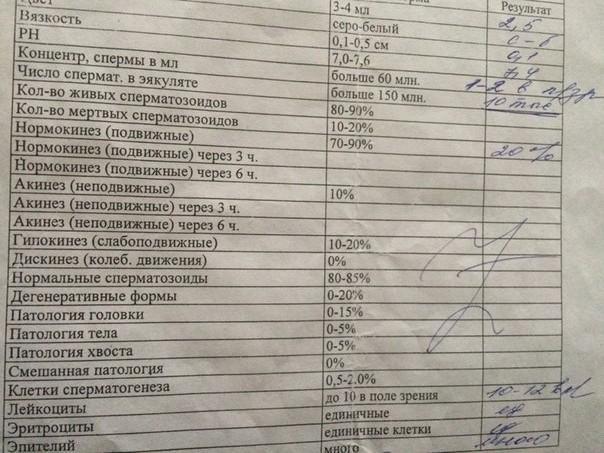 Результат
3-4 мл 2,5
Цвет серо-белый с-б
Вязкость 0,1-0,5 см 0,1
PH 7,0-7,6 7,4
Концентр, спермы в мл больше 60 млн. 1-2 в п/зр
Число спермат. в эякуляте больше 150 млн. 10 тыс
Кол-во живых сперматозоидов 80-90%
Кол-во мертвых сперматозоидов 10-20%
Нормокинез (подвижные) 70-90% 20%
Нормокинез (подвижные) через 3 ч.
Нормокинез (подвижные) через 6 ч.
Акинез (неподвижные) 10%
Акинез (неподвижные) через 3 ч.
Акинез (неподвижные) через 6 ч.
Гипокинез (слабоподвижные) 10-20%
Дискинез (колеб. движения) 0%
Нормальные сперматозоиды 80-85%
Дегенеративные формы 0-20%
Патология головки 0-15%
Патология тела 0-5%
Патология хвоста 0-5%
Смешанная патология 0%
Клетки сперматогенеза 0,5-2.0%
Лейкоциты до 10 в поле зрения 10-12
Эритроциты единичные ед
Эпителий единичные клетки ед
много много